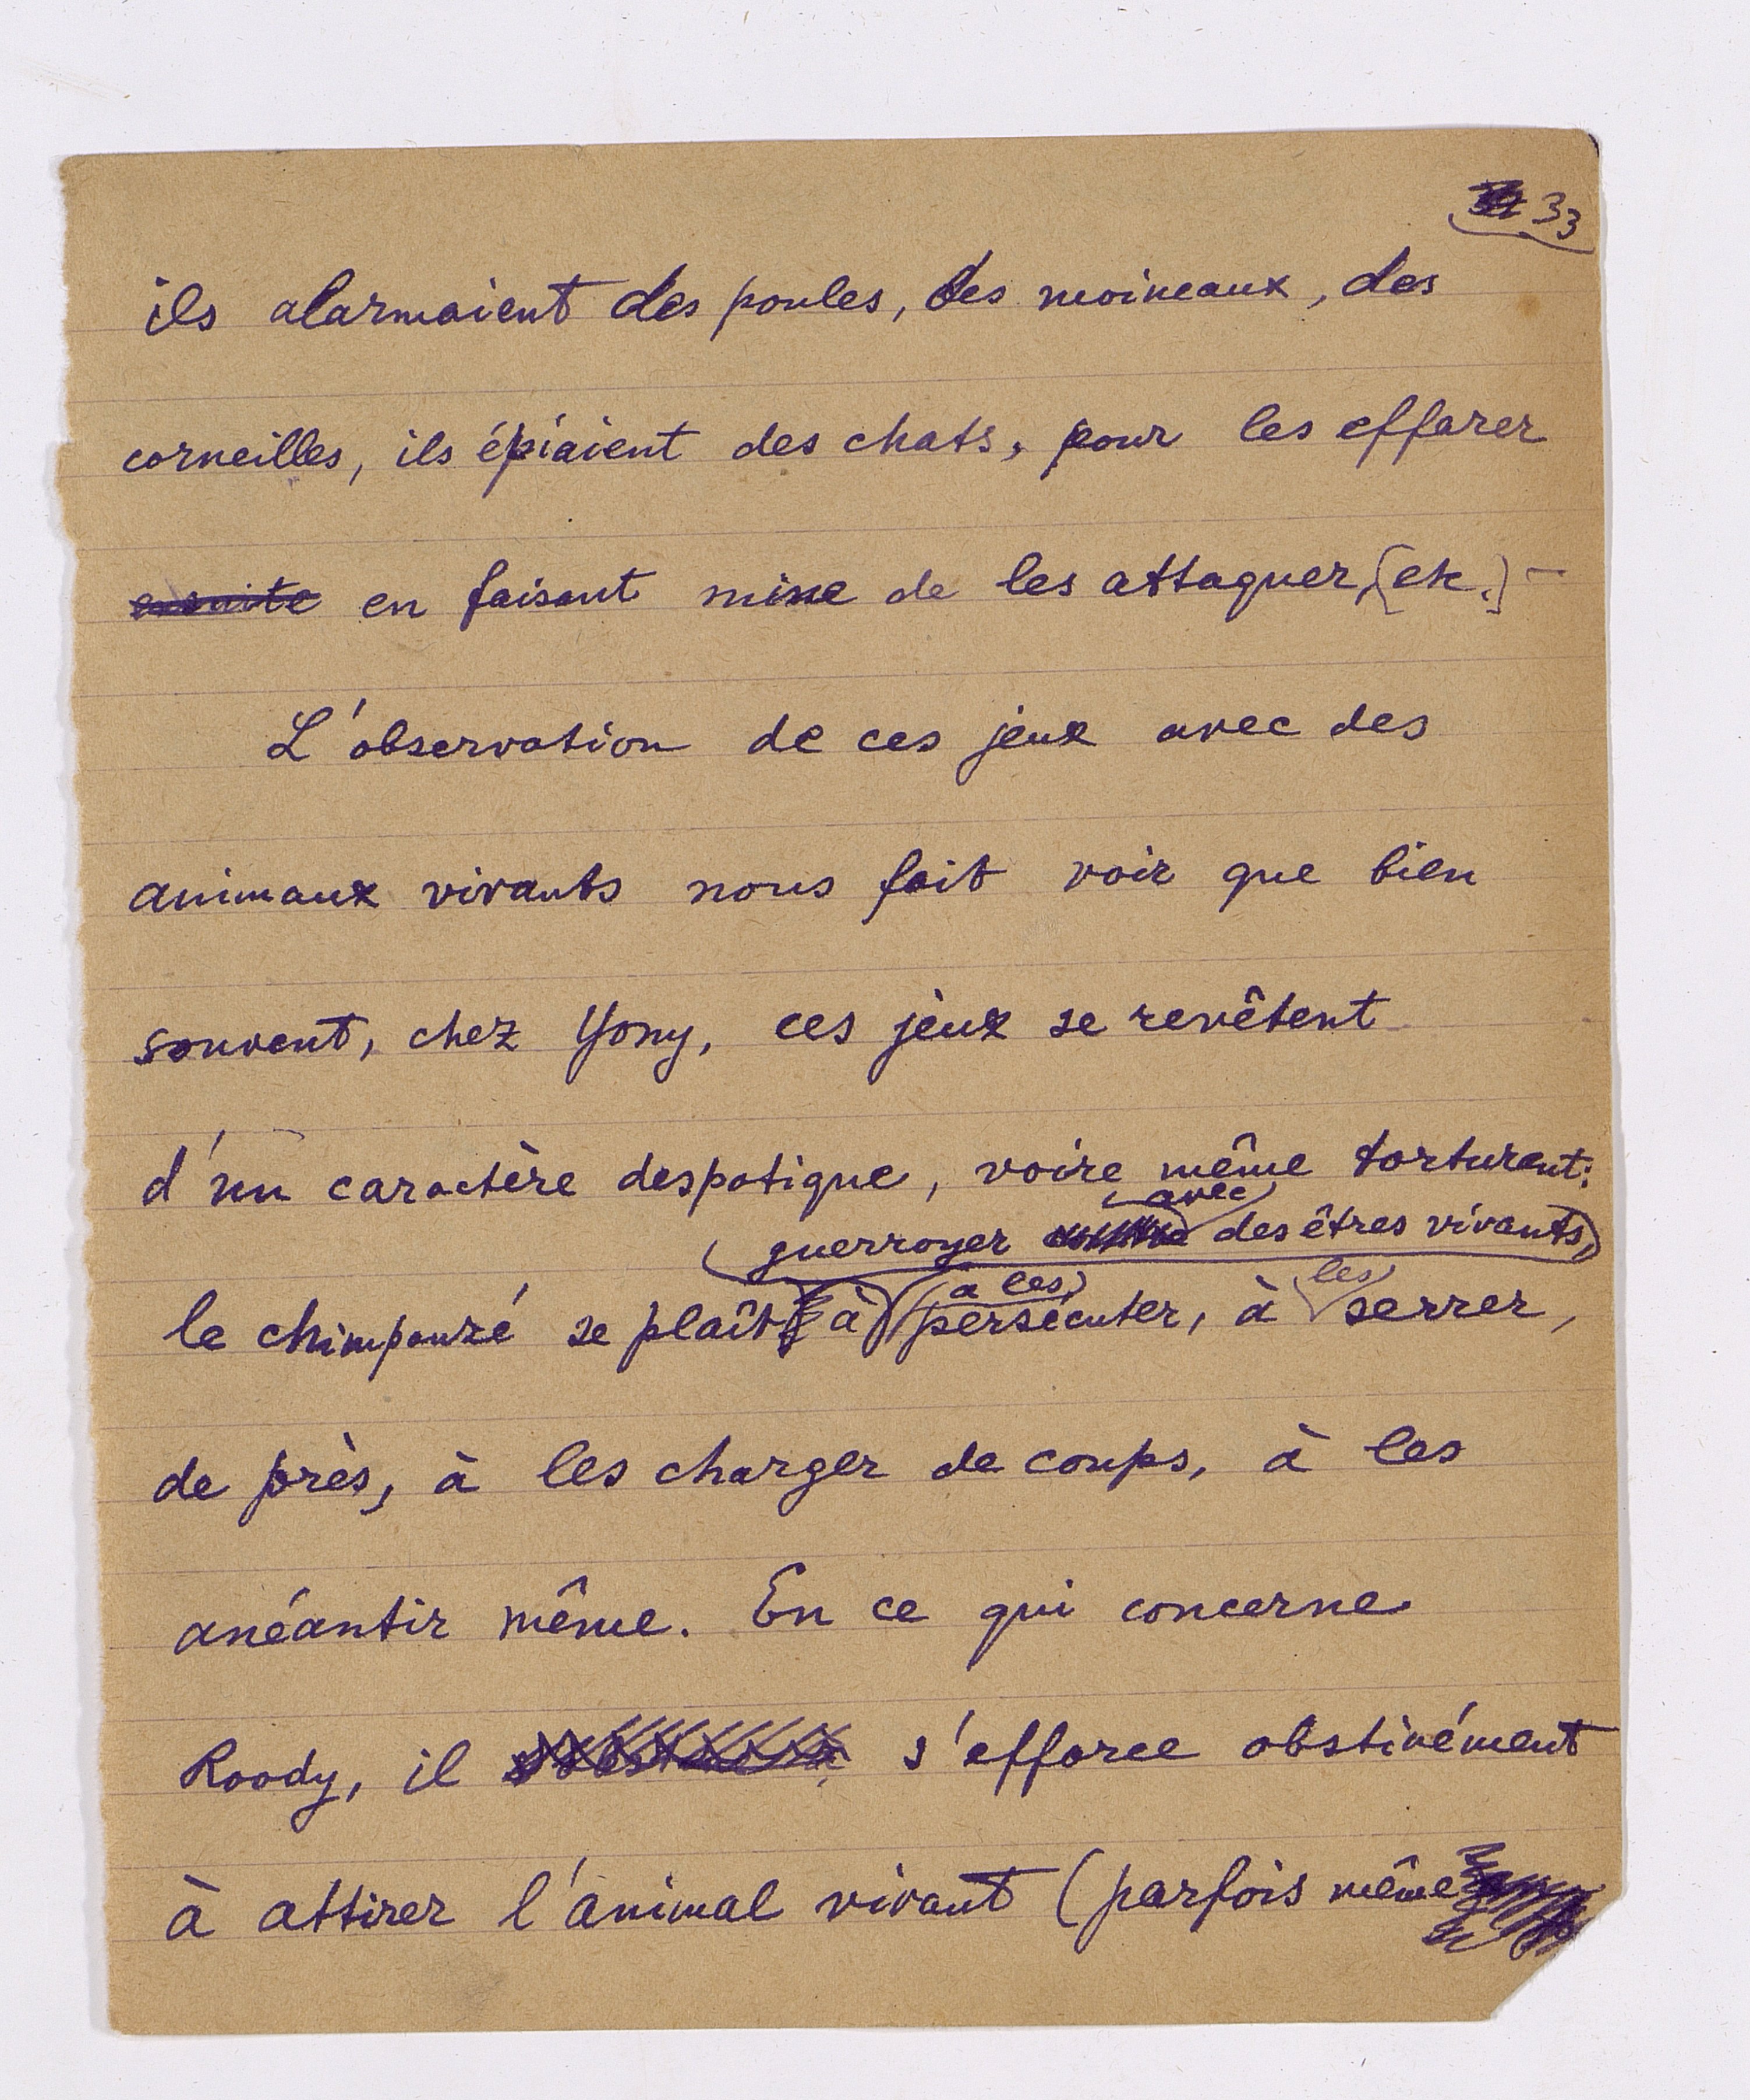 33
ils alarmaient des poules, des moineaux, des
corneilles, ils épiaient des chats, pour les effarer
ensuite en faisant mine de les attaquer, (etc.) –
L'observation de ces jeux avec des
animaux vivants nous fait voir que bien
souvent, chez Yony, ces jeux se revêtent
d'un caractère despotique, voire même torturant:
avec
guerroyer contre des êtres vivants,
à les les
le chimpanzé se plaît à persécuter, à serrer,
de près, à les charger de coups, à les
anéantir même. En ce qui concerne
Roody, il s'efforce obstinément
à attirer l'animal vivant (parfois même